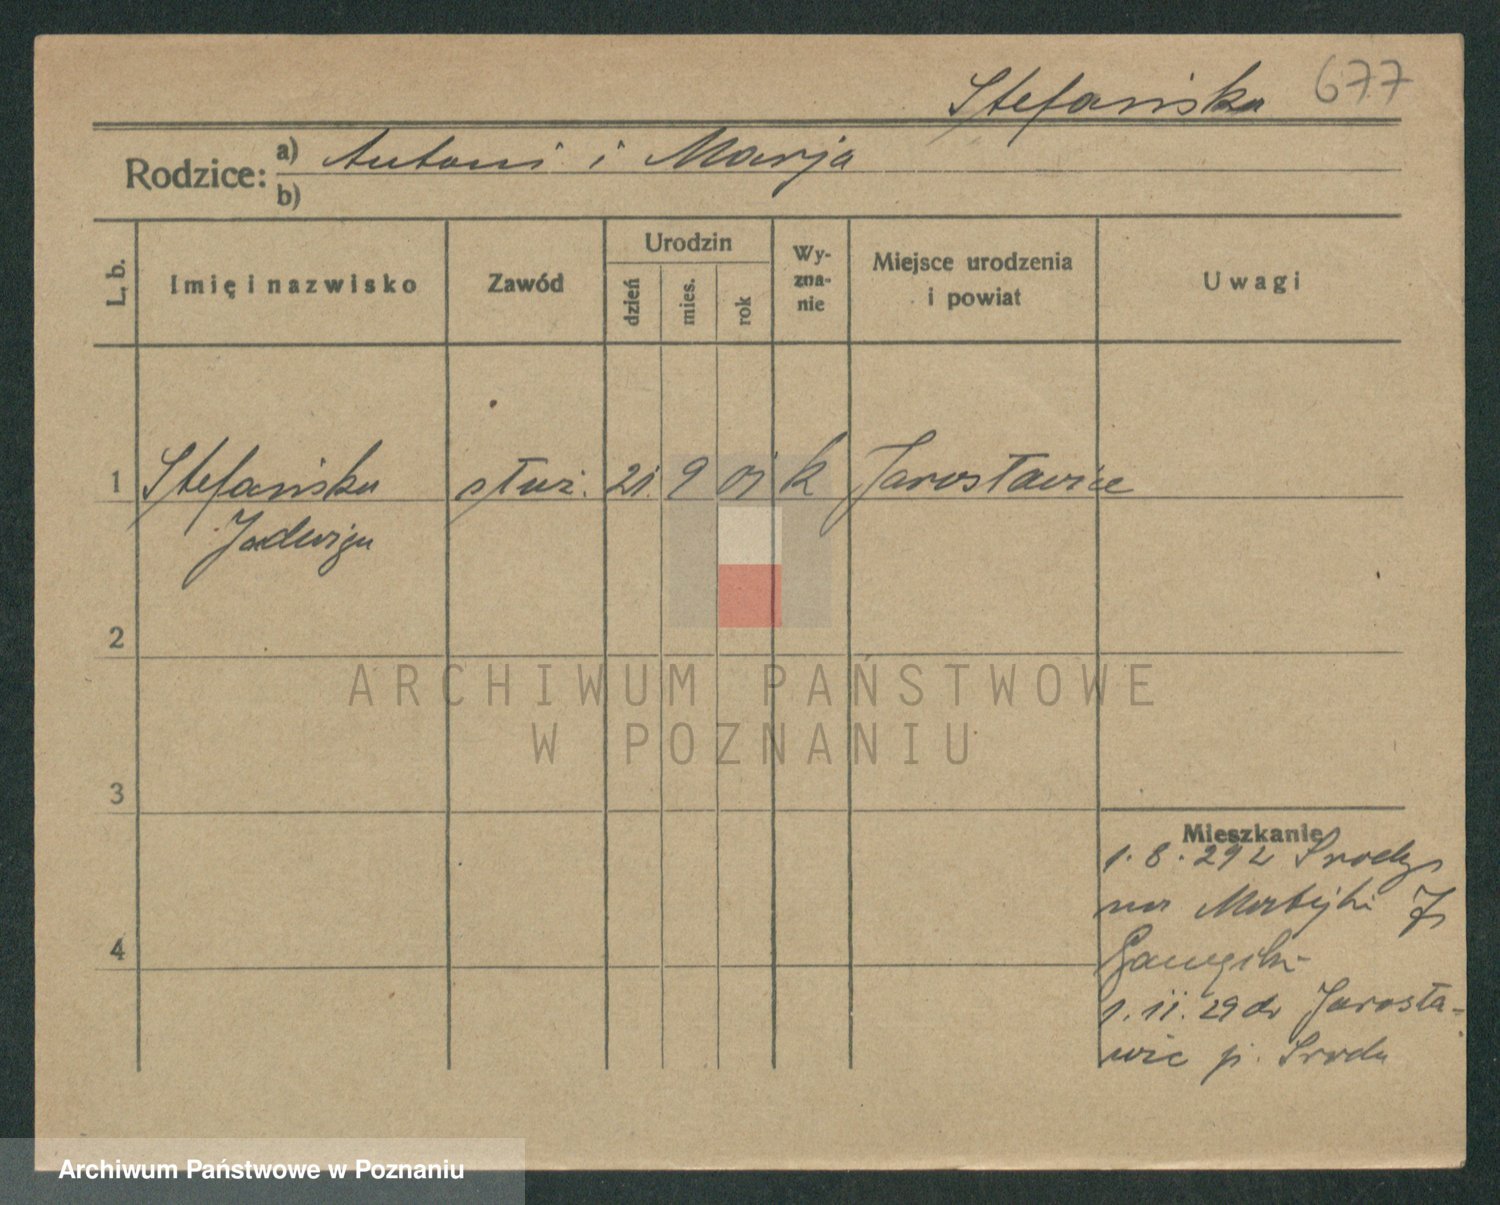 Stefańska 677
Rodzice: a) Antoni i Marja
b)
L. b.
Imię i nazwisko
Zawód
Urodzin
dzień
mies.
rok
Wy-
zna-
nie
Miejsce urodzenia
i powiat
Uwagi
1 Stefańska służ. 21. 9 01 k Jarosławice
Jadwiga
2
3
4
Mieszkanie
1.8.29 z Środy
na Matejki
1.11.29 do Jarosła-
wic p. Środa
ARCHIWUM PAŃSTWOWE
W POZNANIU
Archiwum Państwowe w Poznaniu